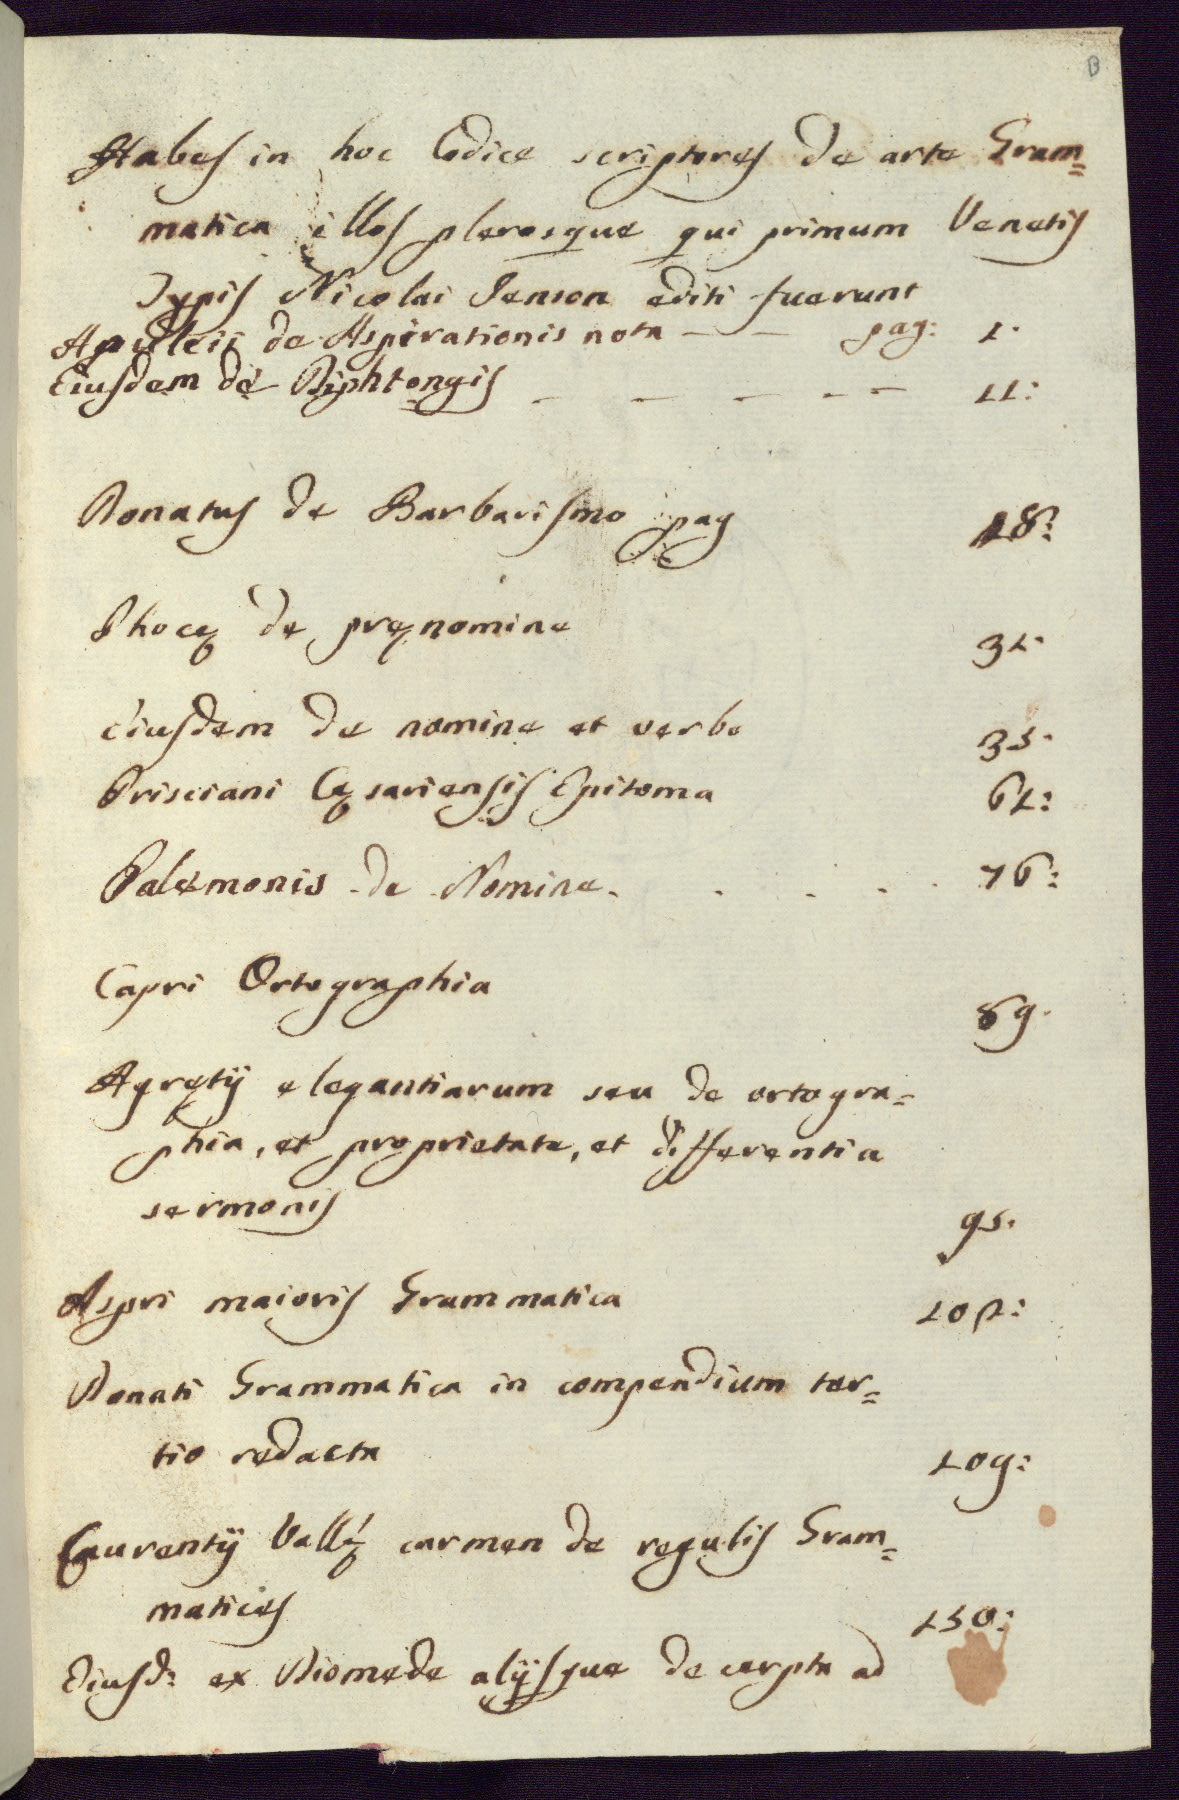 B
Habes in hoc Codice scriptores de arte Gram=
matica illos plerosque qui primum Venetis
Typis Nicolai Jenson editi fuerunt
Apuleii de Aspirationis nota — — pag: 1.
Eiusdem de Diphtongis — — — — — 11:
Donatus de Barbarismo pag 18:
Phocę de pręnomine 31.
Eiusdem de nomine et verbo 35.
Prisciani Cęsariensis Epitoma 61:
Palemonis de Nomine. . . . . 76:
Capri Ortographia 89.
Agrętij elegantiarum seu de ortogra=
phia, et proprietate, et differentia
sermonis 95.
Aspri maioris Grammatica
Donati Grammatica in compendium ter=
tio redacta 109:
Laurentij Vallę carmen de regulis Gram=
matices 150:
Eiusd: ex Diomede alijsque decerpta ad